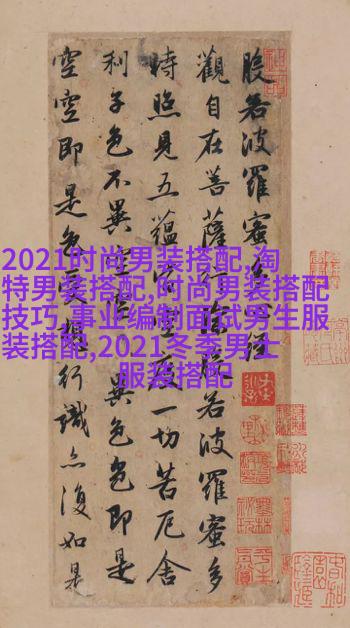 般若波羅蜜多心經
觀自在菩薩行深般若波羅蜜多
時照見五蘊皆空度一切苦厄舍
利子色不異空空不異色色即是
空空即是色受想行識亦復如是
2021时尚男装搭配,淘
特男装搭配,时尚男装搭配
技巧,事业编制面试男生服
装搭配,2021冬季男士
服装搭配